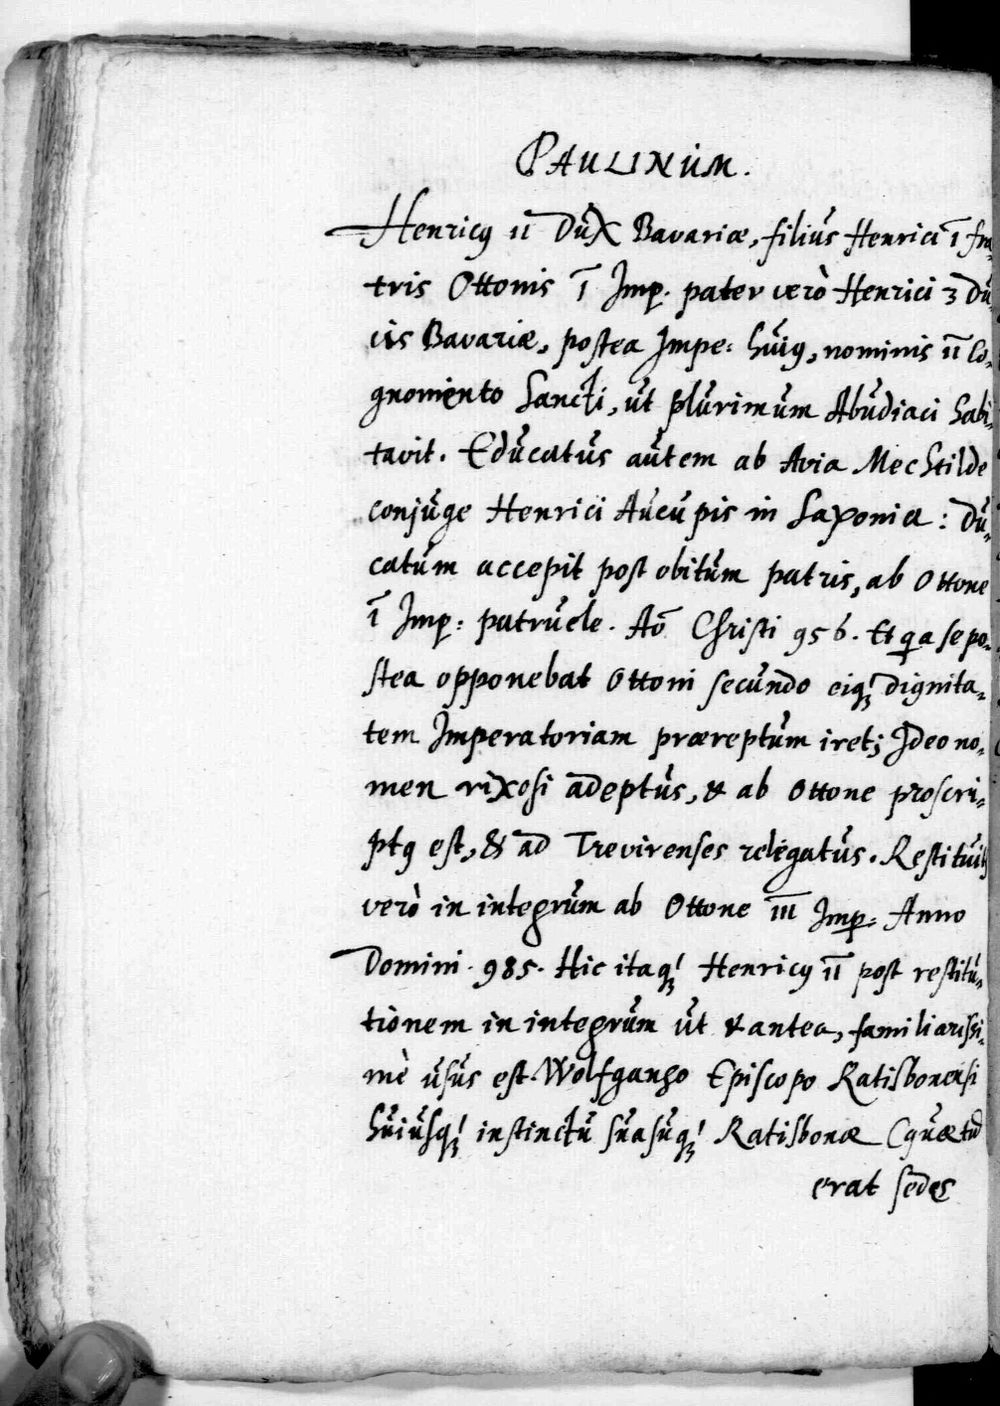 PAULINUM.
Henricꝰ II Dux Bavariæ, filius Henrici I fra-
tris Ottonis I Imp. pater verò Henrici 3 Du-
cis Bavariæ, postea Impe: huiꝰ, nominis II Co-
gnomento Sancti, ut plurimum Abudiaci habi-
tavit. Educatus autem ab Avia Mechtilde
conjuge Henrici Aucupis in Saxonia: Du-
catum accepit post obitum patris, ab Ottone
I Imp: patruele. Aō Christi 956. Et qa se po-
stea opponebat Ottoni secundo eiqꝫ dignita-
tem Imperatoriam præreptum iret; Ideo no-
men rixosi adeptus, & ab Ottone proscri-
ptꝰ est, & ad Trevirenses relegatus. Restitutꝰ
verò in integrum ab Ottone III Imp: Anno
Domini. 985. Hic itaqꝫ Henricꝰ II post restitu-
tionem in integrum ut & antea, familiarissi-
mè usus est Wolfgango Episcopo Ratisbonensi
huiusqꝫ instinctu suasuqꝫ Ratisbonæ (quæ tũ
erat sedes